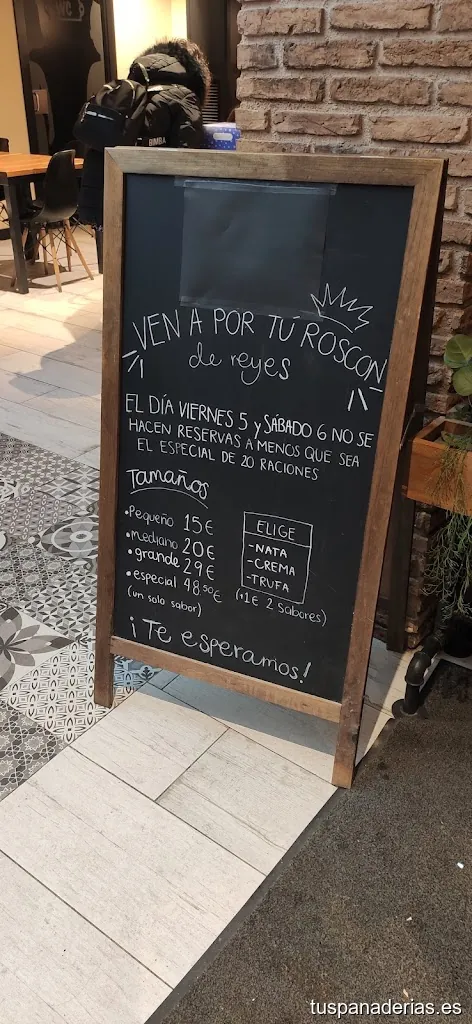 VEN A POR TU ROSCON
de reyes
EL DÍA VIERNES 5 y SÁBADO 6 NO SE
HACEN RESERVAS A MENOS QUE SEA
EL ESPECIAL DE 20 RACIONES
TAMAÑOS
•Pequeño 15€
•mediano 20€
•grande 29€
•especial 48'50€
(un solo sabor)
ELIGE
-NATA
-CREMA
-TRUFA
(+1€ 2 Sabores)
¡Te esperamos!
tuspanaderias.es